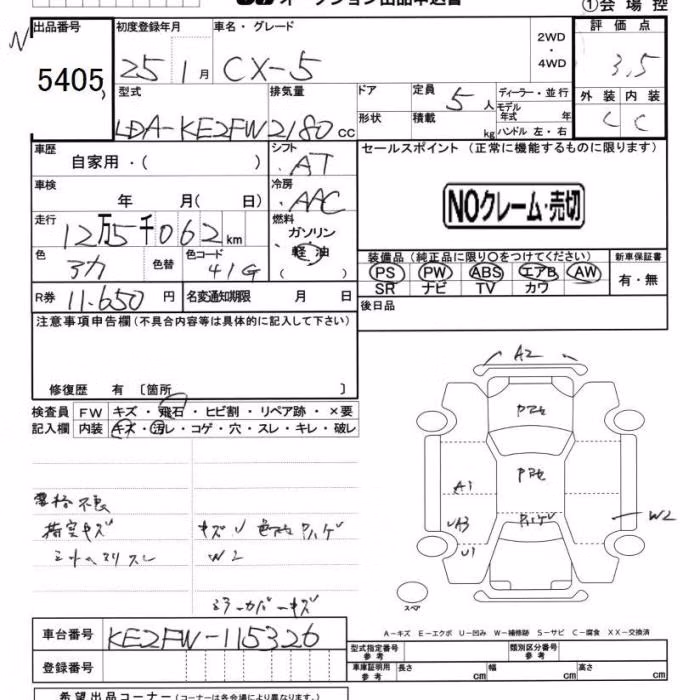 オークション出品申込書
①会場控
N
出品番号 5405
初度登録年月 25 1月
車名・グレード CX-5
2WD・4WD
評価点 3.5
型式 LDA-KE2FW
排気量 2180cc
ドア
形状
定員 5人
積載 kg
ディーラー・並行
モデル年式 年
ハンドル 左・右
外装 C 内装 C
車歴 自家用・( )
シフト AT
セールスポイント(正常に機能するものに限ります)
車検 年 月( 日)
冷房 AAC
NOクレーム・売切
走行 12万5千062km
燃料 ガソリン・軽油 ( )
色 アカ 色替
色コード 41G
装備品(純正品に限り○をつけてください)
PS PW ABS エアB AW
SR ナビ TV カワ
新車保証書 有・無
R券 11.650円
名変通知期限 月 日
後日品
注意事項申告欄(不具合内容等は具体的に記入して下さい)
修復歴 有 [箇所 ]
検査員 FW キズ・飛石・ヒビ割・リペア跡・×要
記入欄 内装 キズ・汚レ・コゲ・穴・スレ・キレ・破レ
A2
A1
UA3
U1
W2
スペア
キズ
W2
ミラーカバーキズ
A-キズ E-エクボ U-凹み W-補修跡 S-サビ C-腐食 XX-交換済
車台番号 KE2FW-115326
登録番号
型式指定番号 参考
類別区分番号 参考
車庫証明用 参考 長さ cm 幅 cm 高さ cm
希望出品コーナー(コーナーは各会場により異なります。)